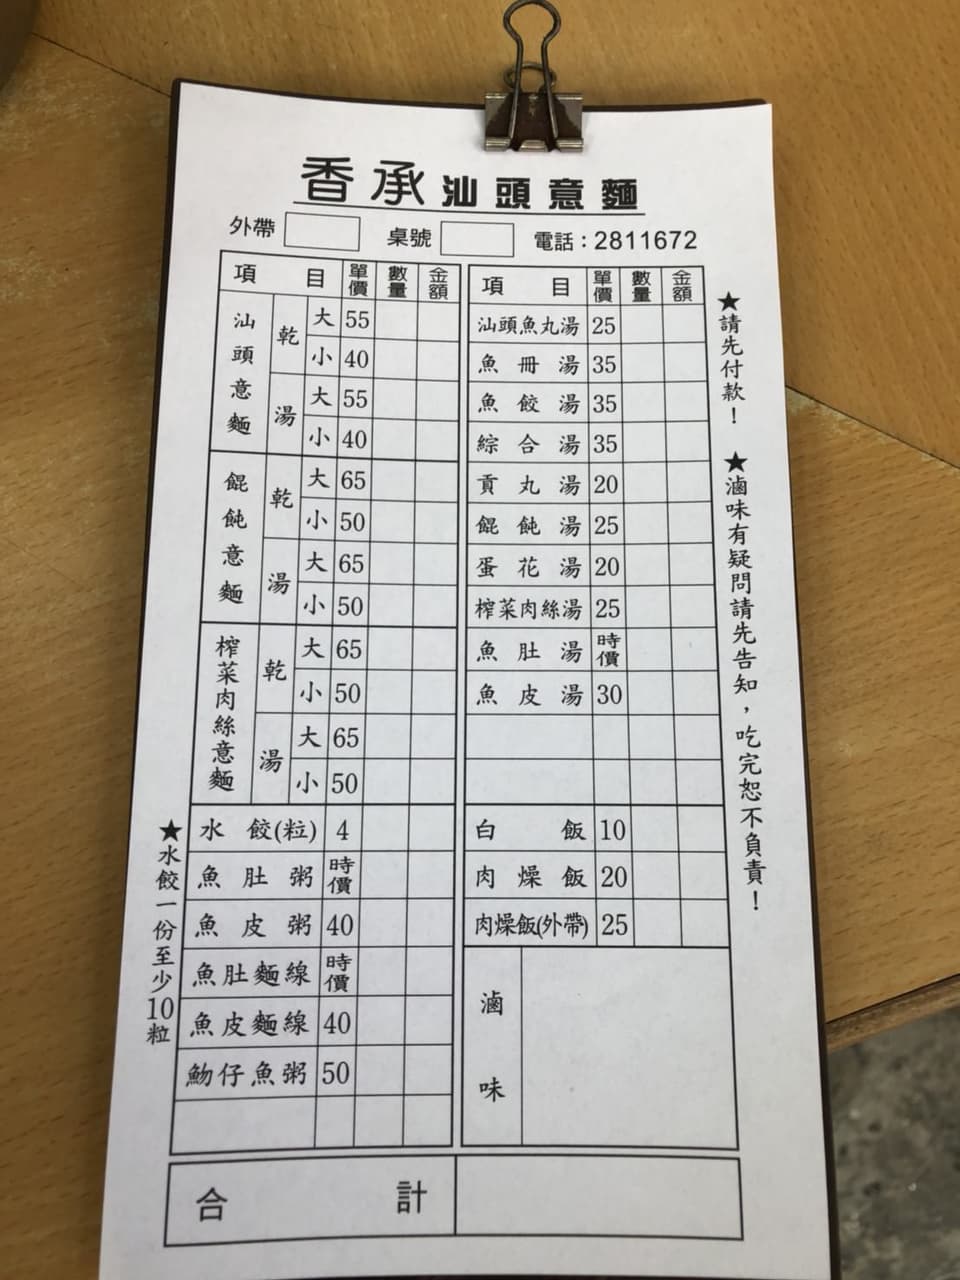 香承汕頭意麵
外帶 桌號 電話：2811672
項目 單價 數量 金額
汕頭意麵
乾
大 55
小 40
湯
大 55
小 40
餛飩意麵
乾
大 65
小 50
湯
大 65
小 50
榨菜肉絲意麵
乾
大 65
小 50
湯
大 65
小 50
水餃(粒) 4
魚肚粥 時價
魚皮粥 40
魚肚麵線 時價
魚皮麵線 40
魩仔魚粥 50
項目 單價 數量 金額
汕頭魚丸湯 25
魚冊湯 35
魚餃湯 35
綜合湯 35
貢丸湯 20
餛飩湯 25
蛋花湯 20
榨菜肉絲湯 25
魚肚湯 時價
魚皮湯 30
白飯 10
肉燥飯 20
肉燥飯(外帶) 25
滷味
合計
★請先付款！ ★滷味有疑問請先告知，吃完恕不負責！
★水餃一份至少10粒